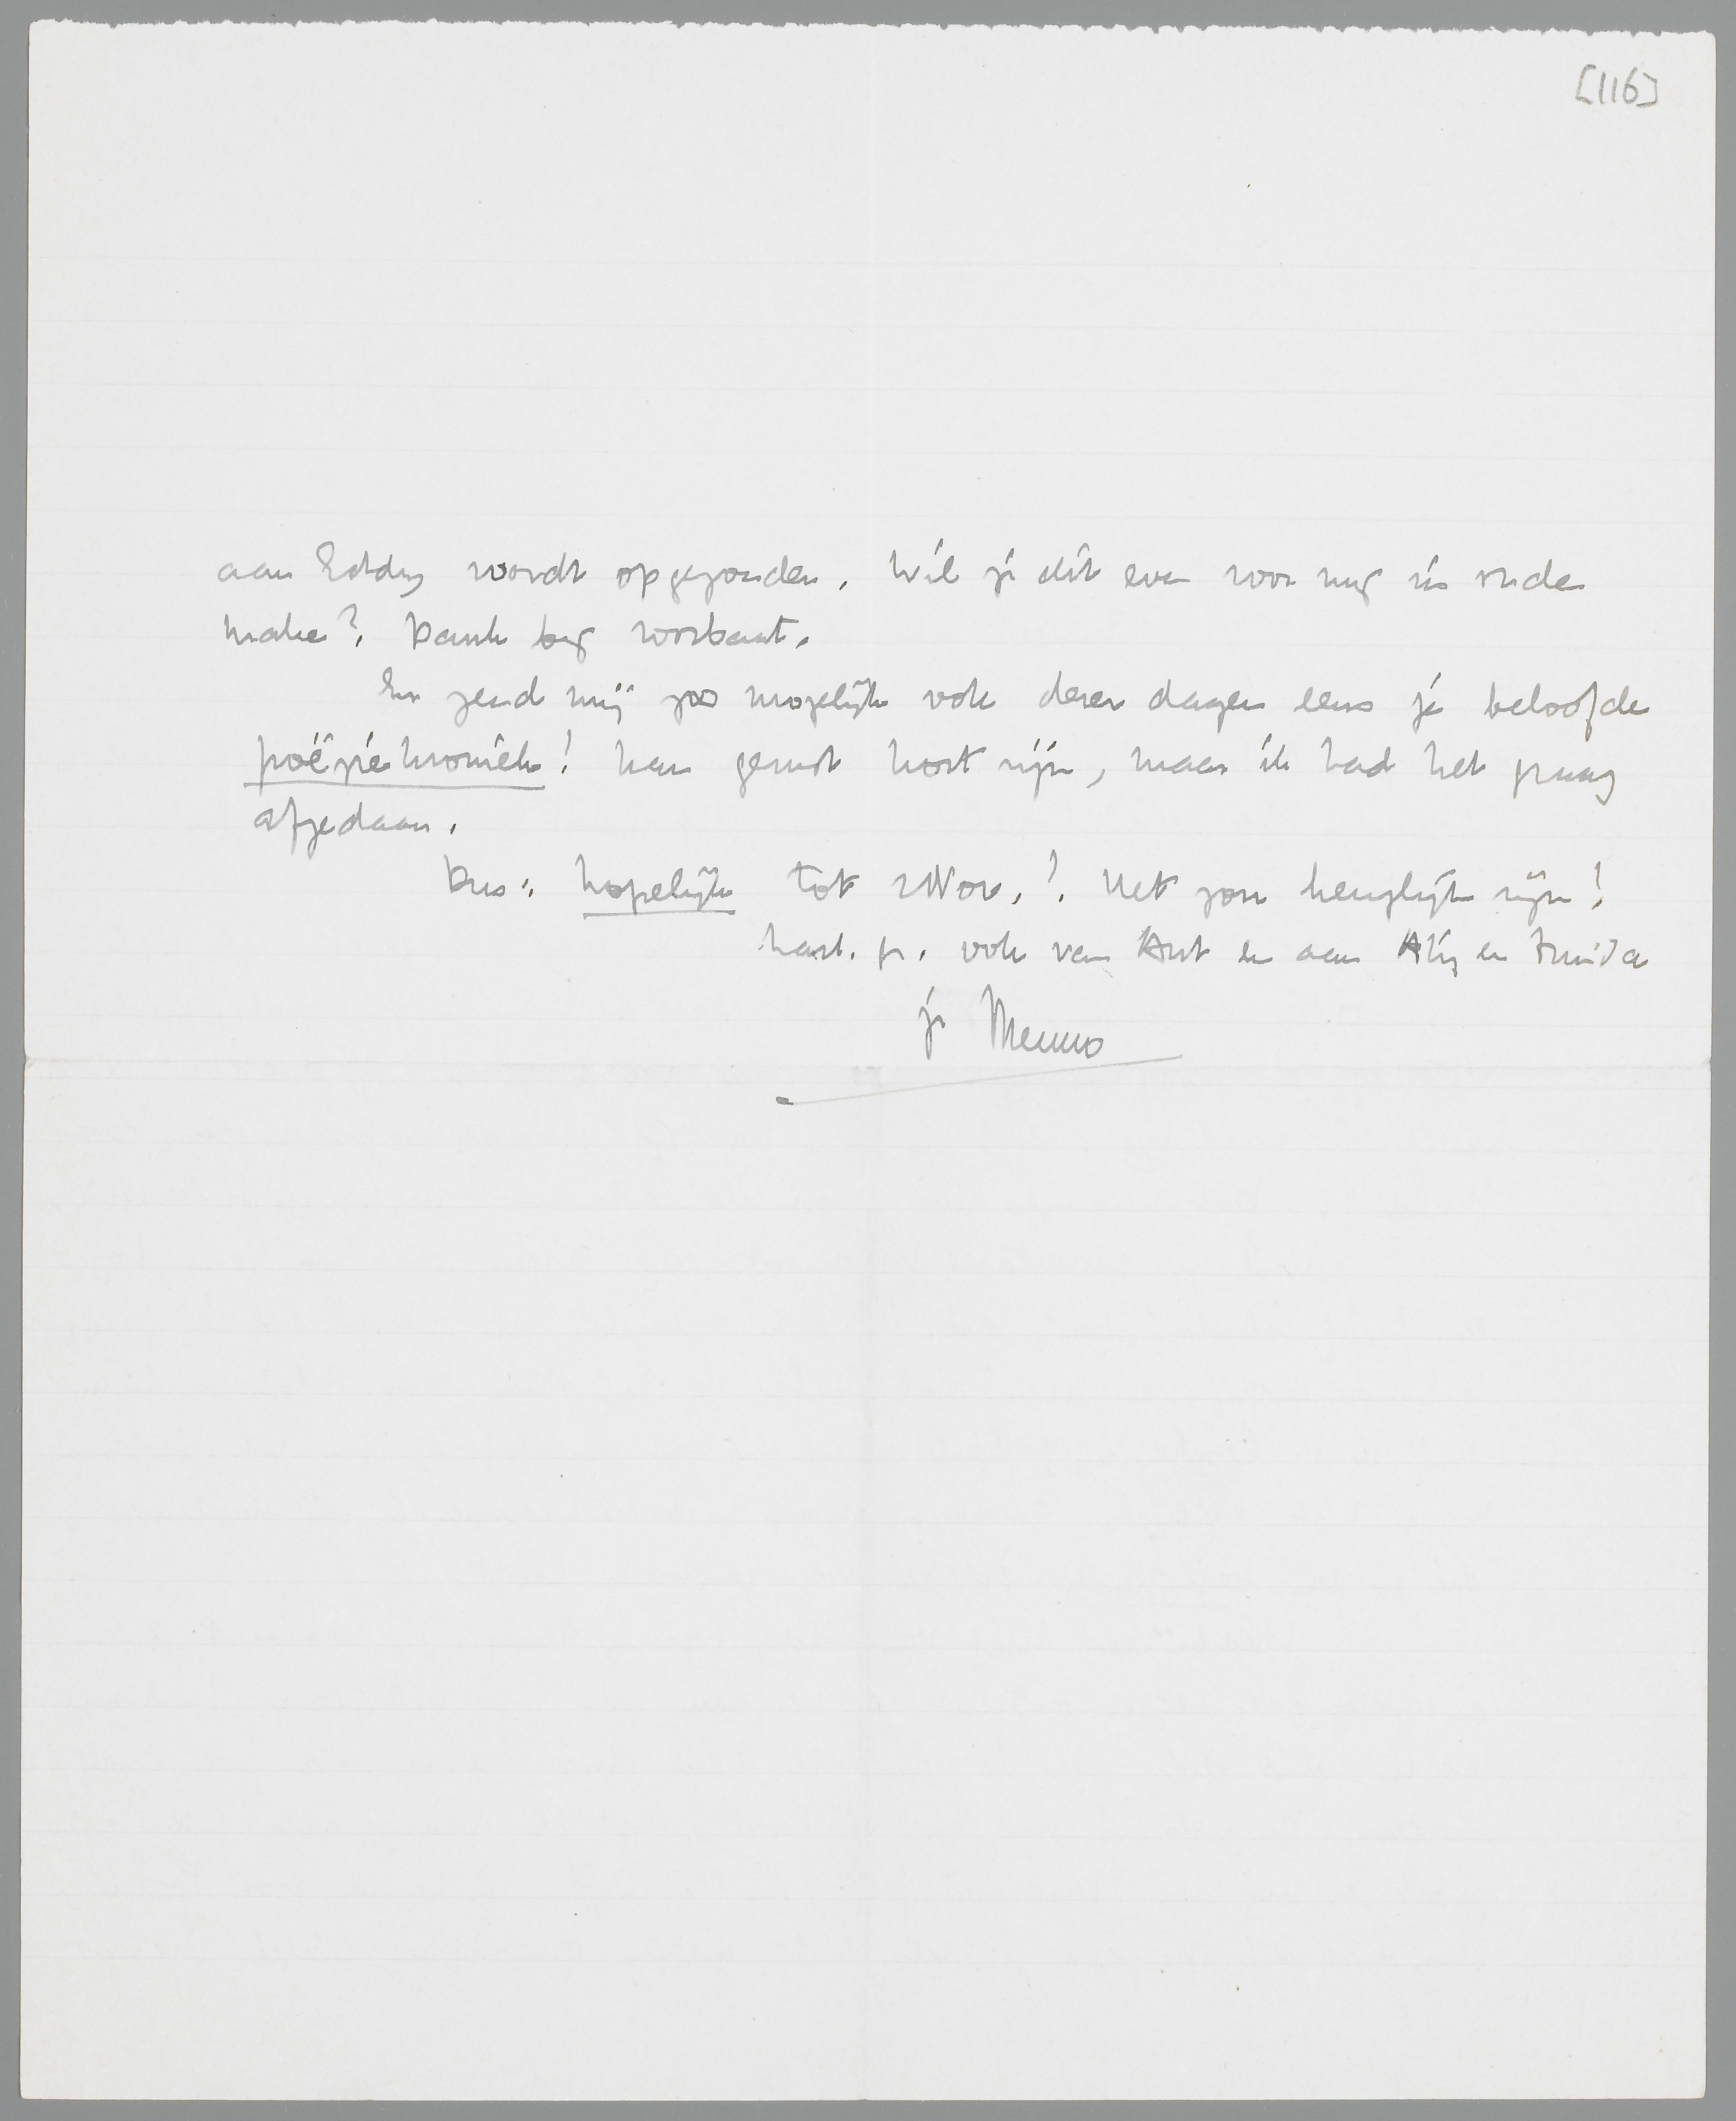 [116]
aan Eddy wordt opgezonden. Wil je dit even voor mij in orde
maken? Dank bij voorbaat.
En zend mij zoo mogelijk ook dezer dagen eens je beloofde
poëziekroniek! Kan gerust kort zijn, maar ik had het graag
afgedaan.
Dus: hopelijk tot 2 Nov.! Het zou heuglijk zijn!
hart. gr. ook van Ant en aan en
je Menno